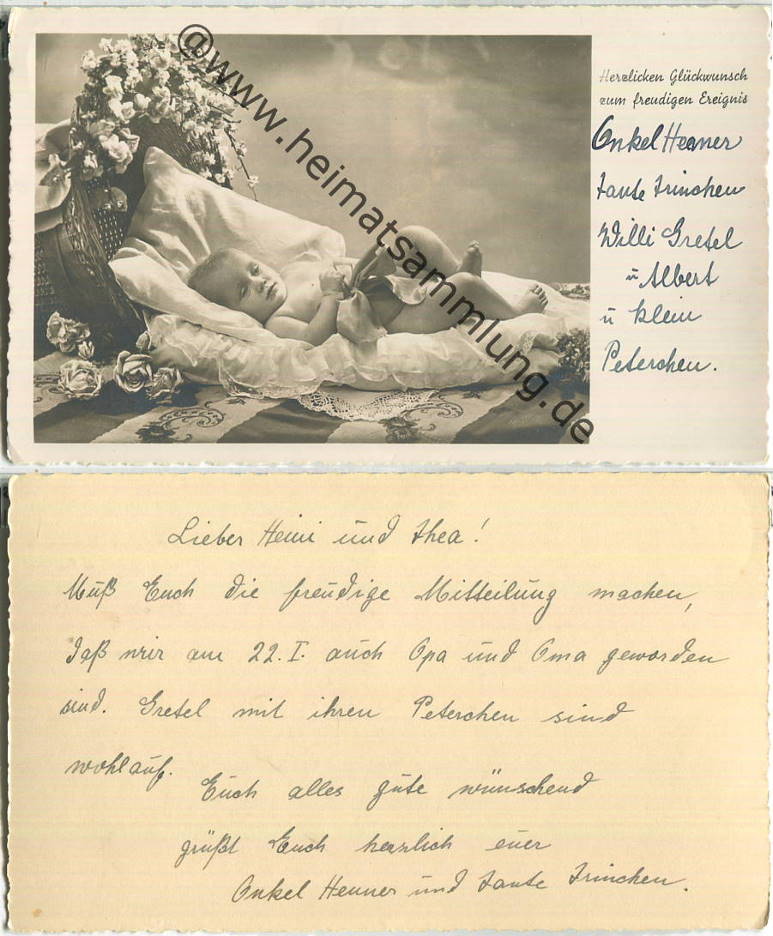 Herzlichen Glückwunsch
zum freudigen Ereignis
Onkel Henner
Tante Trinchen
Willi Gretel
u Albert
u klein
Peterchen.
@www.heimatsammlung.de
Lieber Heini und Thea!
Muß Euch die freudige Mitteilung machen,
daß wir am 22. I. auch Opa und Oma geworden
sind. Gretel mit ihren Peterchen sind
wohlauf.
Euch alles gute wünschend
grüßt Euch herzlich euer
Onkel Henner und Tante Trinchen.